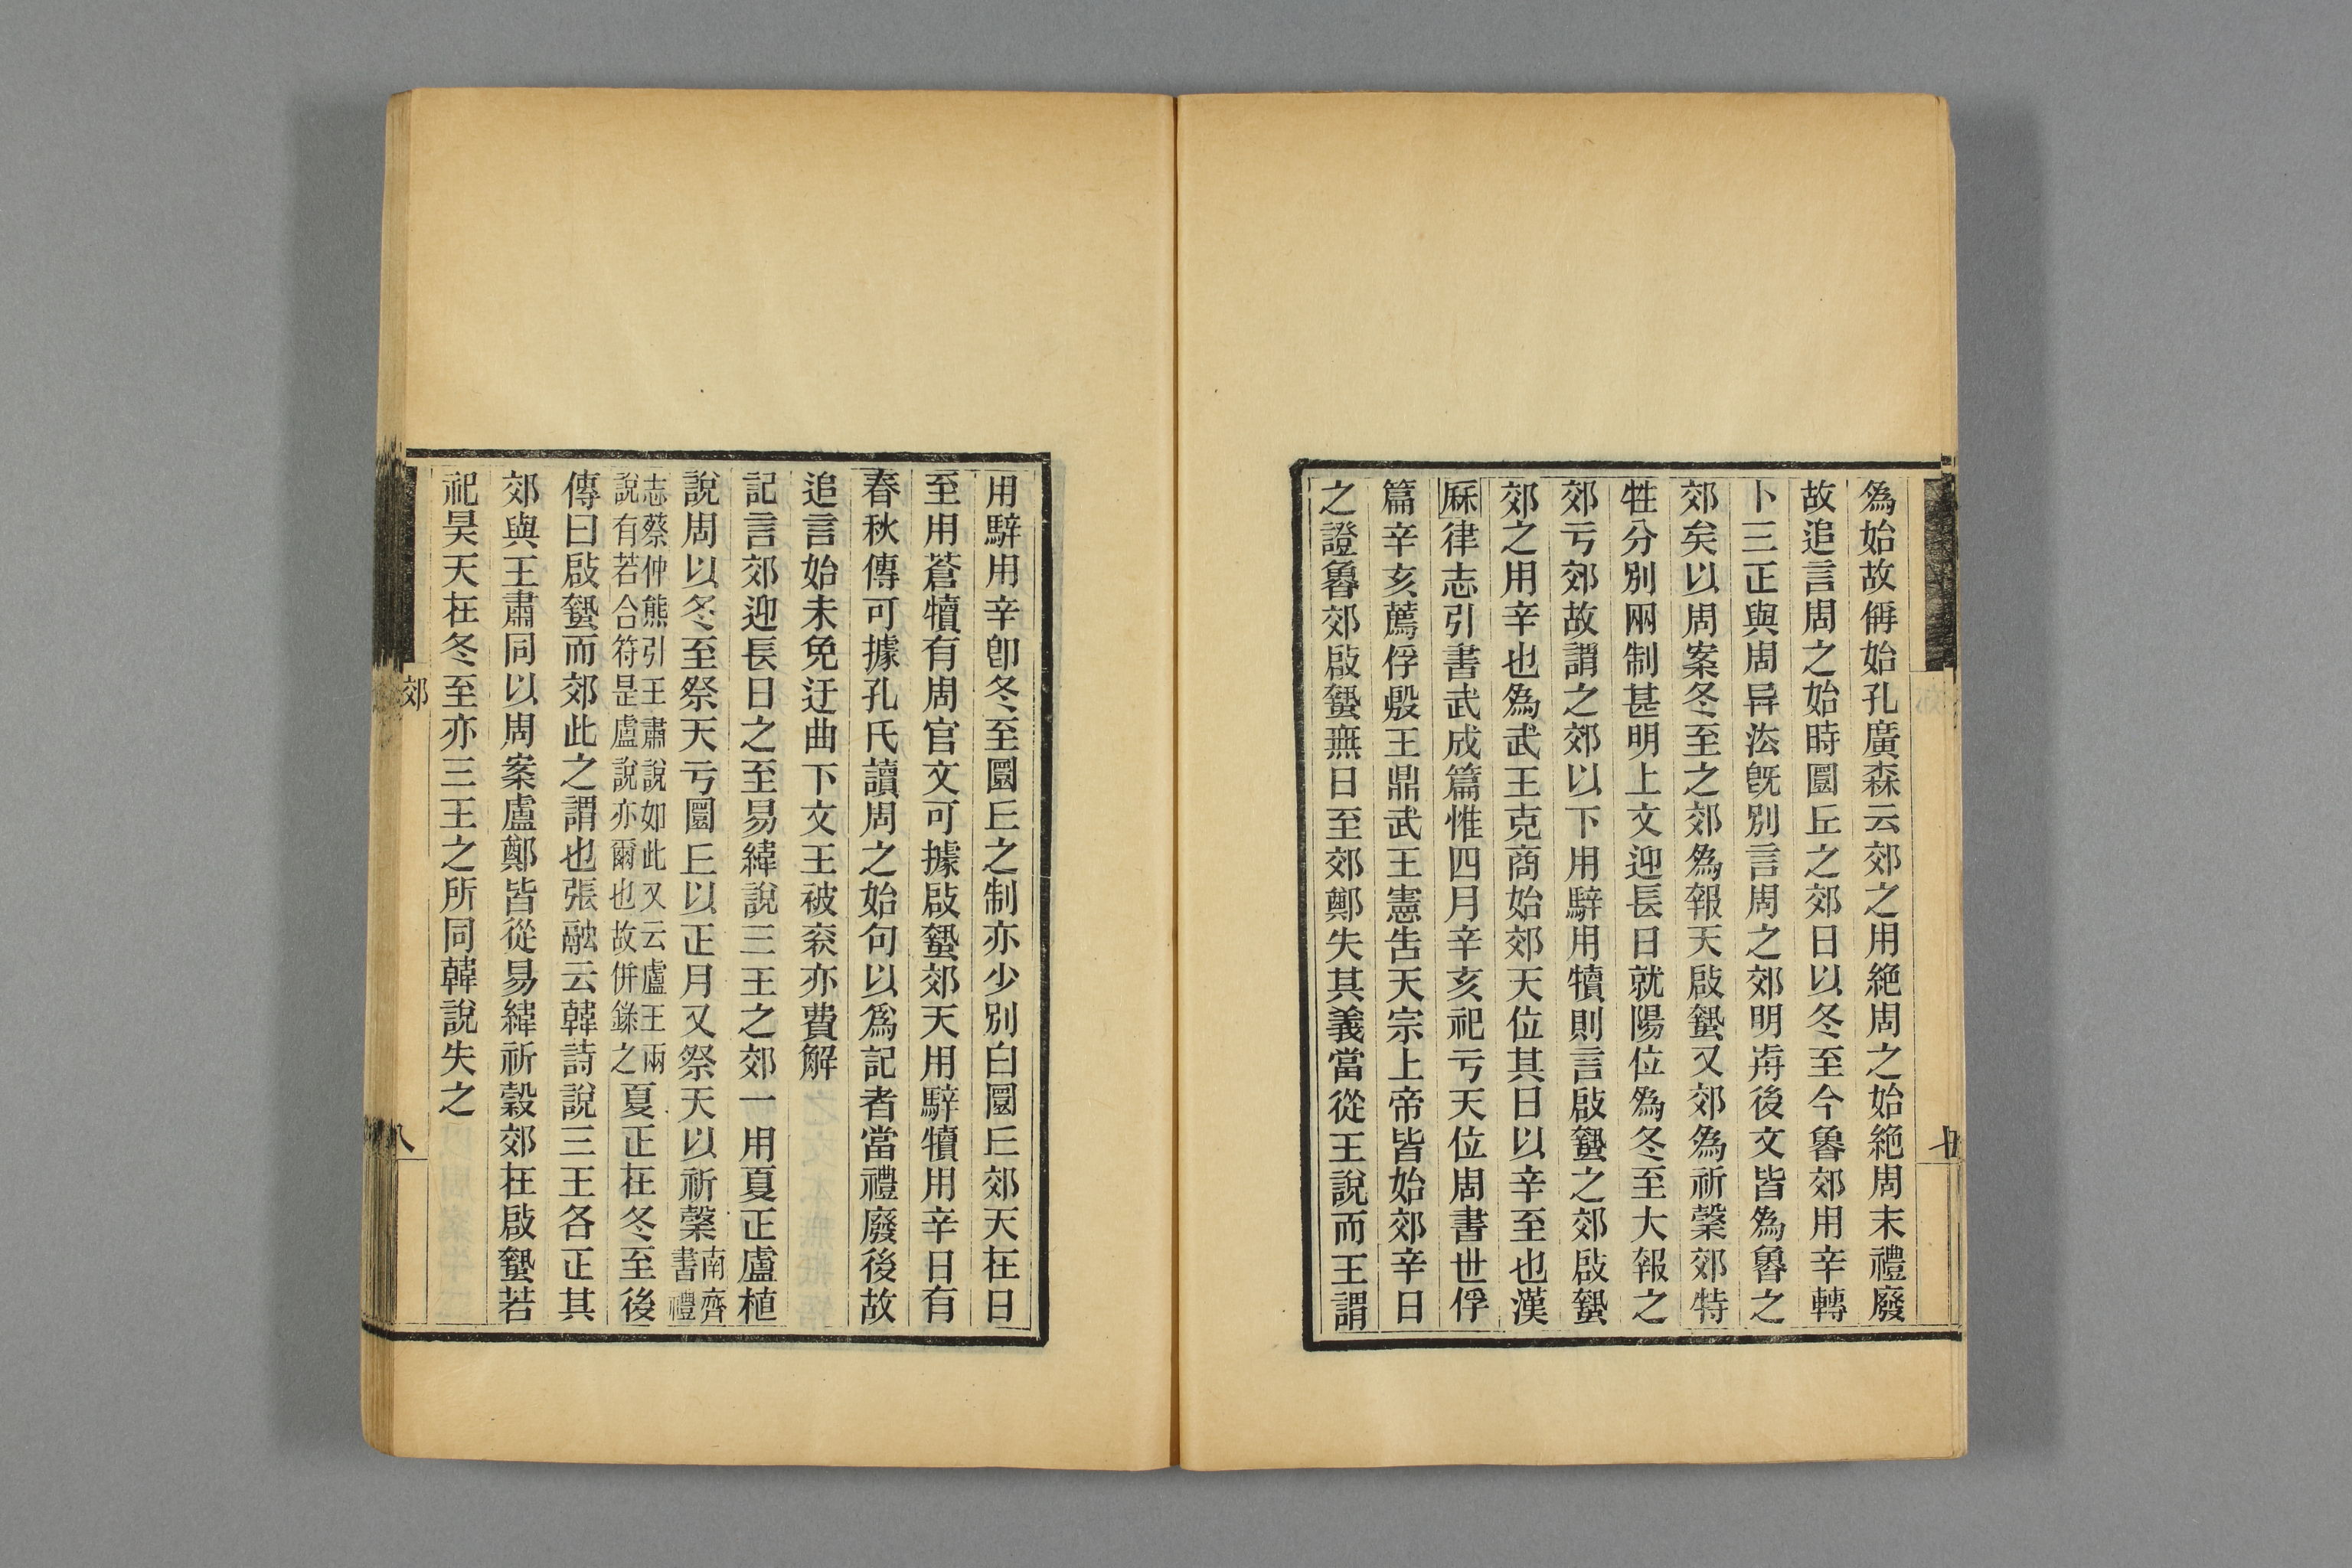 爲始故偁始孔廣森云郊之用絶周之始絶周末禮廢
故追言周之始時圜丘之郊日以冬至今魯郊用辛轉
卜三正與周异法旣別言周之郊明歬後文皆爲魯之
郊矣以周案冬至之郊爲報天啟蟄又郊爲祈榖郊特
牲分別兩制甚明上文迎長日就陽位爲冬至大報之
郊亏郊故謂之郊以下用騂用犢則言啟蟄之郊啟蟄
郊之用辛也爲武王克商始郊天位其日以辛至也漢
厤律志引書武成篇惟四月辛亥祀亏天位周書世俘
篇辛亥薦俘殷王鼎武王憲告天宗上帝皆始郊辛日
之證魯郊啟蟄無日至郊鄭失其義當從王說而王謂
用騂用辛卽冬至圜丘之制亦少別白圜丘郊天在日
至用蒼犢有周官文可據啟蟄郊天用騂犢用辛日有
春秋傳可據孔氏讀周之始句以爲記者當禮廢後故
追言始未免迂曲下文王被衮亦費解
記言郊迎長日之至易緯說三王之郊一用夏正盧植
說周以冬至祭天亏圜丘以正月又祭天以祈榖南齊
書禮
志蔡仲熊引王肅說如此又云盧王兩
說有若合符是盧說亦爾也故併錄之夏正在冬至後
傳曰啟蟄而郊此之謂也張融云韓詩說三王各正其
郊與王肅同以周案盧鄭皆從易緯祈榖郊在啟蟄若
祀昊天在冬至亦三王之所同韓說失之
郊
八